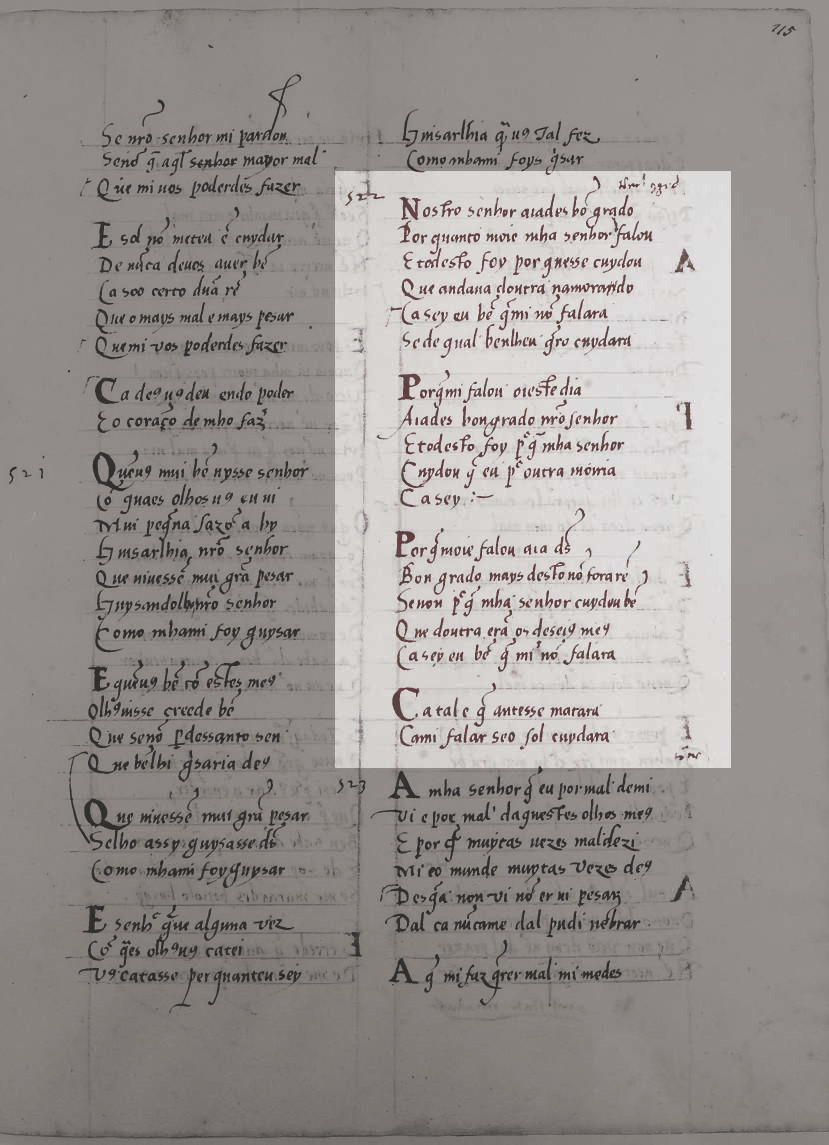 115
Se nr̄o senhor mi pardon
Senō q̄ aq̄l senhor mayor mal
Que mi uos poderdes fazer
E sol nō meteu ē cuydar
De nūca deuos auer bē
Ca soo certo dūa rē
Que o mays mal e mays pesar
Quemi vos poderdes fazer
Ca deꝯ uꝯ deu endo poder
Eo coraçō de mho faz̄
521
Quēuꝯ mui bē uysse senhor
Cō quaes olhos uꝯ eu ui
Mui peq̄na sazō a hy
Guisarlhia nr̄o senhor
Que niuessē mui grā pesar
Guysandolho nr̄o senhor
Como mhami foy guysar
E quēuꝯ bē cō estes meꝯ
Olhꝯ uisse creede bē
Que senō perdessanto sen
Que bēlhi gͥsaria deꝯ
Que niuessē mui grā pesar
Selho assy guysasse ds̄
Como mhami foy guysar
E senhʳ que alguna vez
Cō q̄es olhꝯ uꝯ catei
Vꝯ catasse per quanteu sey
Guisarlhia q̄ uꝯ tal fez
Como mhami foys gͥsar
522
Nostro senhor aiades bō grado
Por quanto moie mha senhor falou
E todesto foy por quesse cuydou
Que andaua doutra namorando
Ca sey eu bē q̄ mi nō falara
Se de qual benlheu q̄ro cuydara
A
Porq̄mi falou oieste dia
Aiades bon grado nr̄o senhor
E todesto foy pᵉ q̄ mha senhor
Cuydou q̄ eu pᵉ outra moiria
Ca sey :~
P
Porq̄ moie falou aia ds̄
Bon grado mays desto nō fora rē
Senon pᵉ q̄ mha senhor cuydou bē
Que doutra erā os deseiꝯ meꝯ
Ca sey eu bē q̄ mi nō falara
Ca tal e q̄ antesse matara
Cami falar seo sol cuydara
523
A mha senhor q̄ eu por mal demi
Vi e por mal daquestes olhos meꝯ
E por q̄ muytas uezes maldezi
Mi eo munde muytas vezes deꝯ
Desq̄a non vi nō er ui pesar
Dal ca nūcame dal pudi nēbrar
A
A q̄ mi faz q̄rer mal mi medes